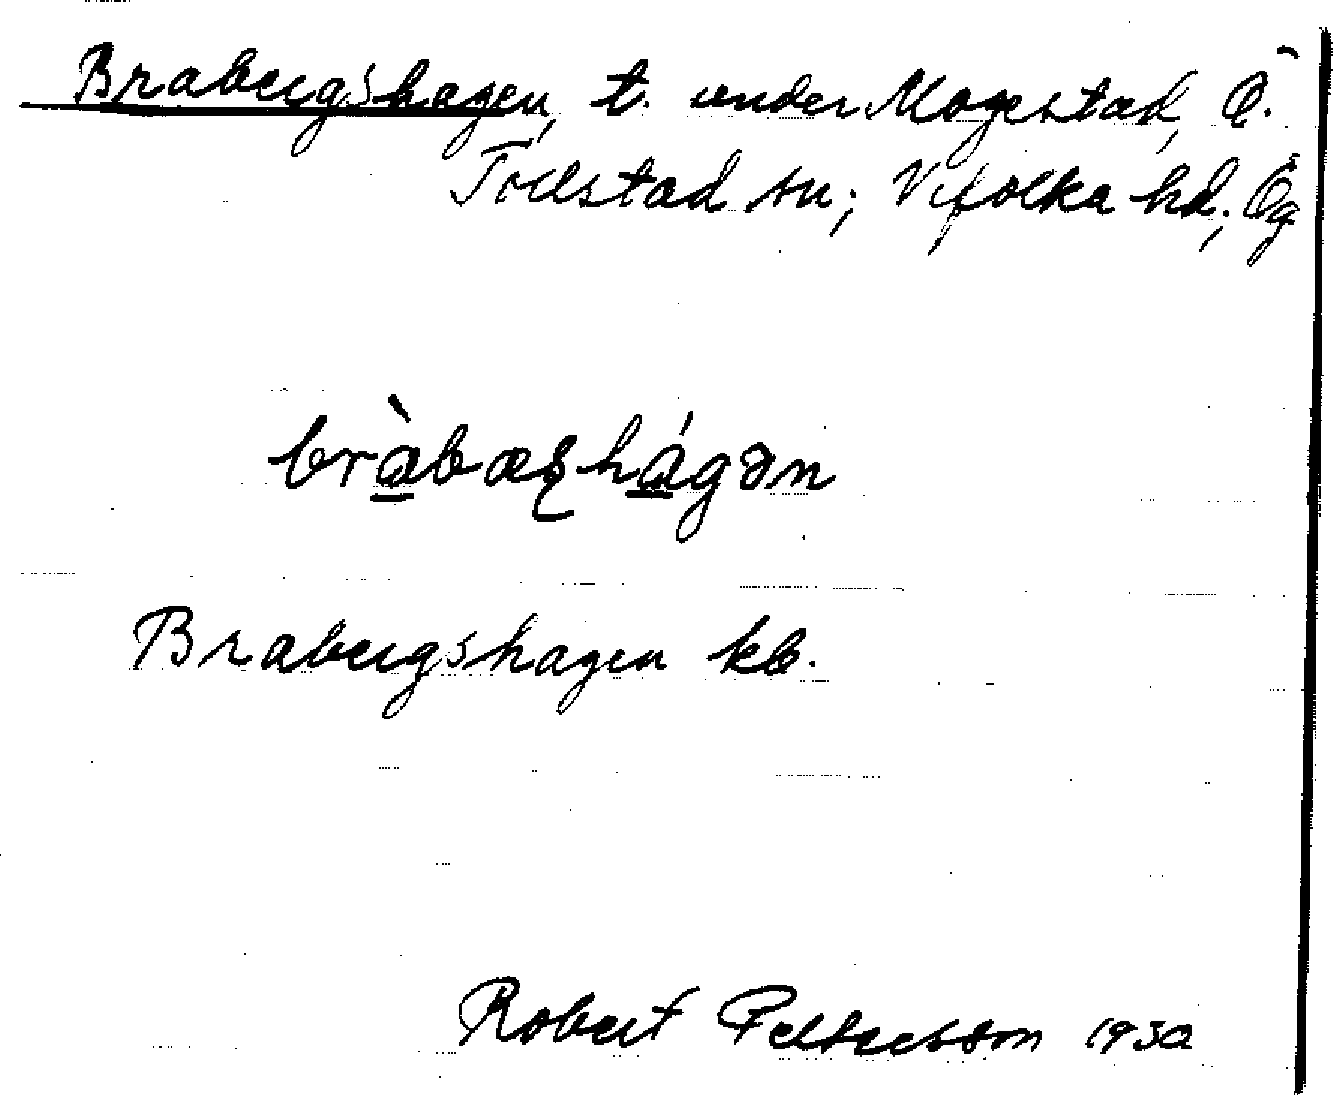 Brabergshagen, t. under Mogestad, Ö.
Tollstad sn; Vifolka hd, Ög
bràbæʂhágən
Brabergshagen kb.
Robert Pettersson 1930